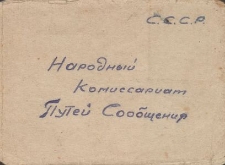 С.С.С.Р.
Народный
Комиссариат
Путей Сообщения